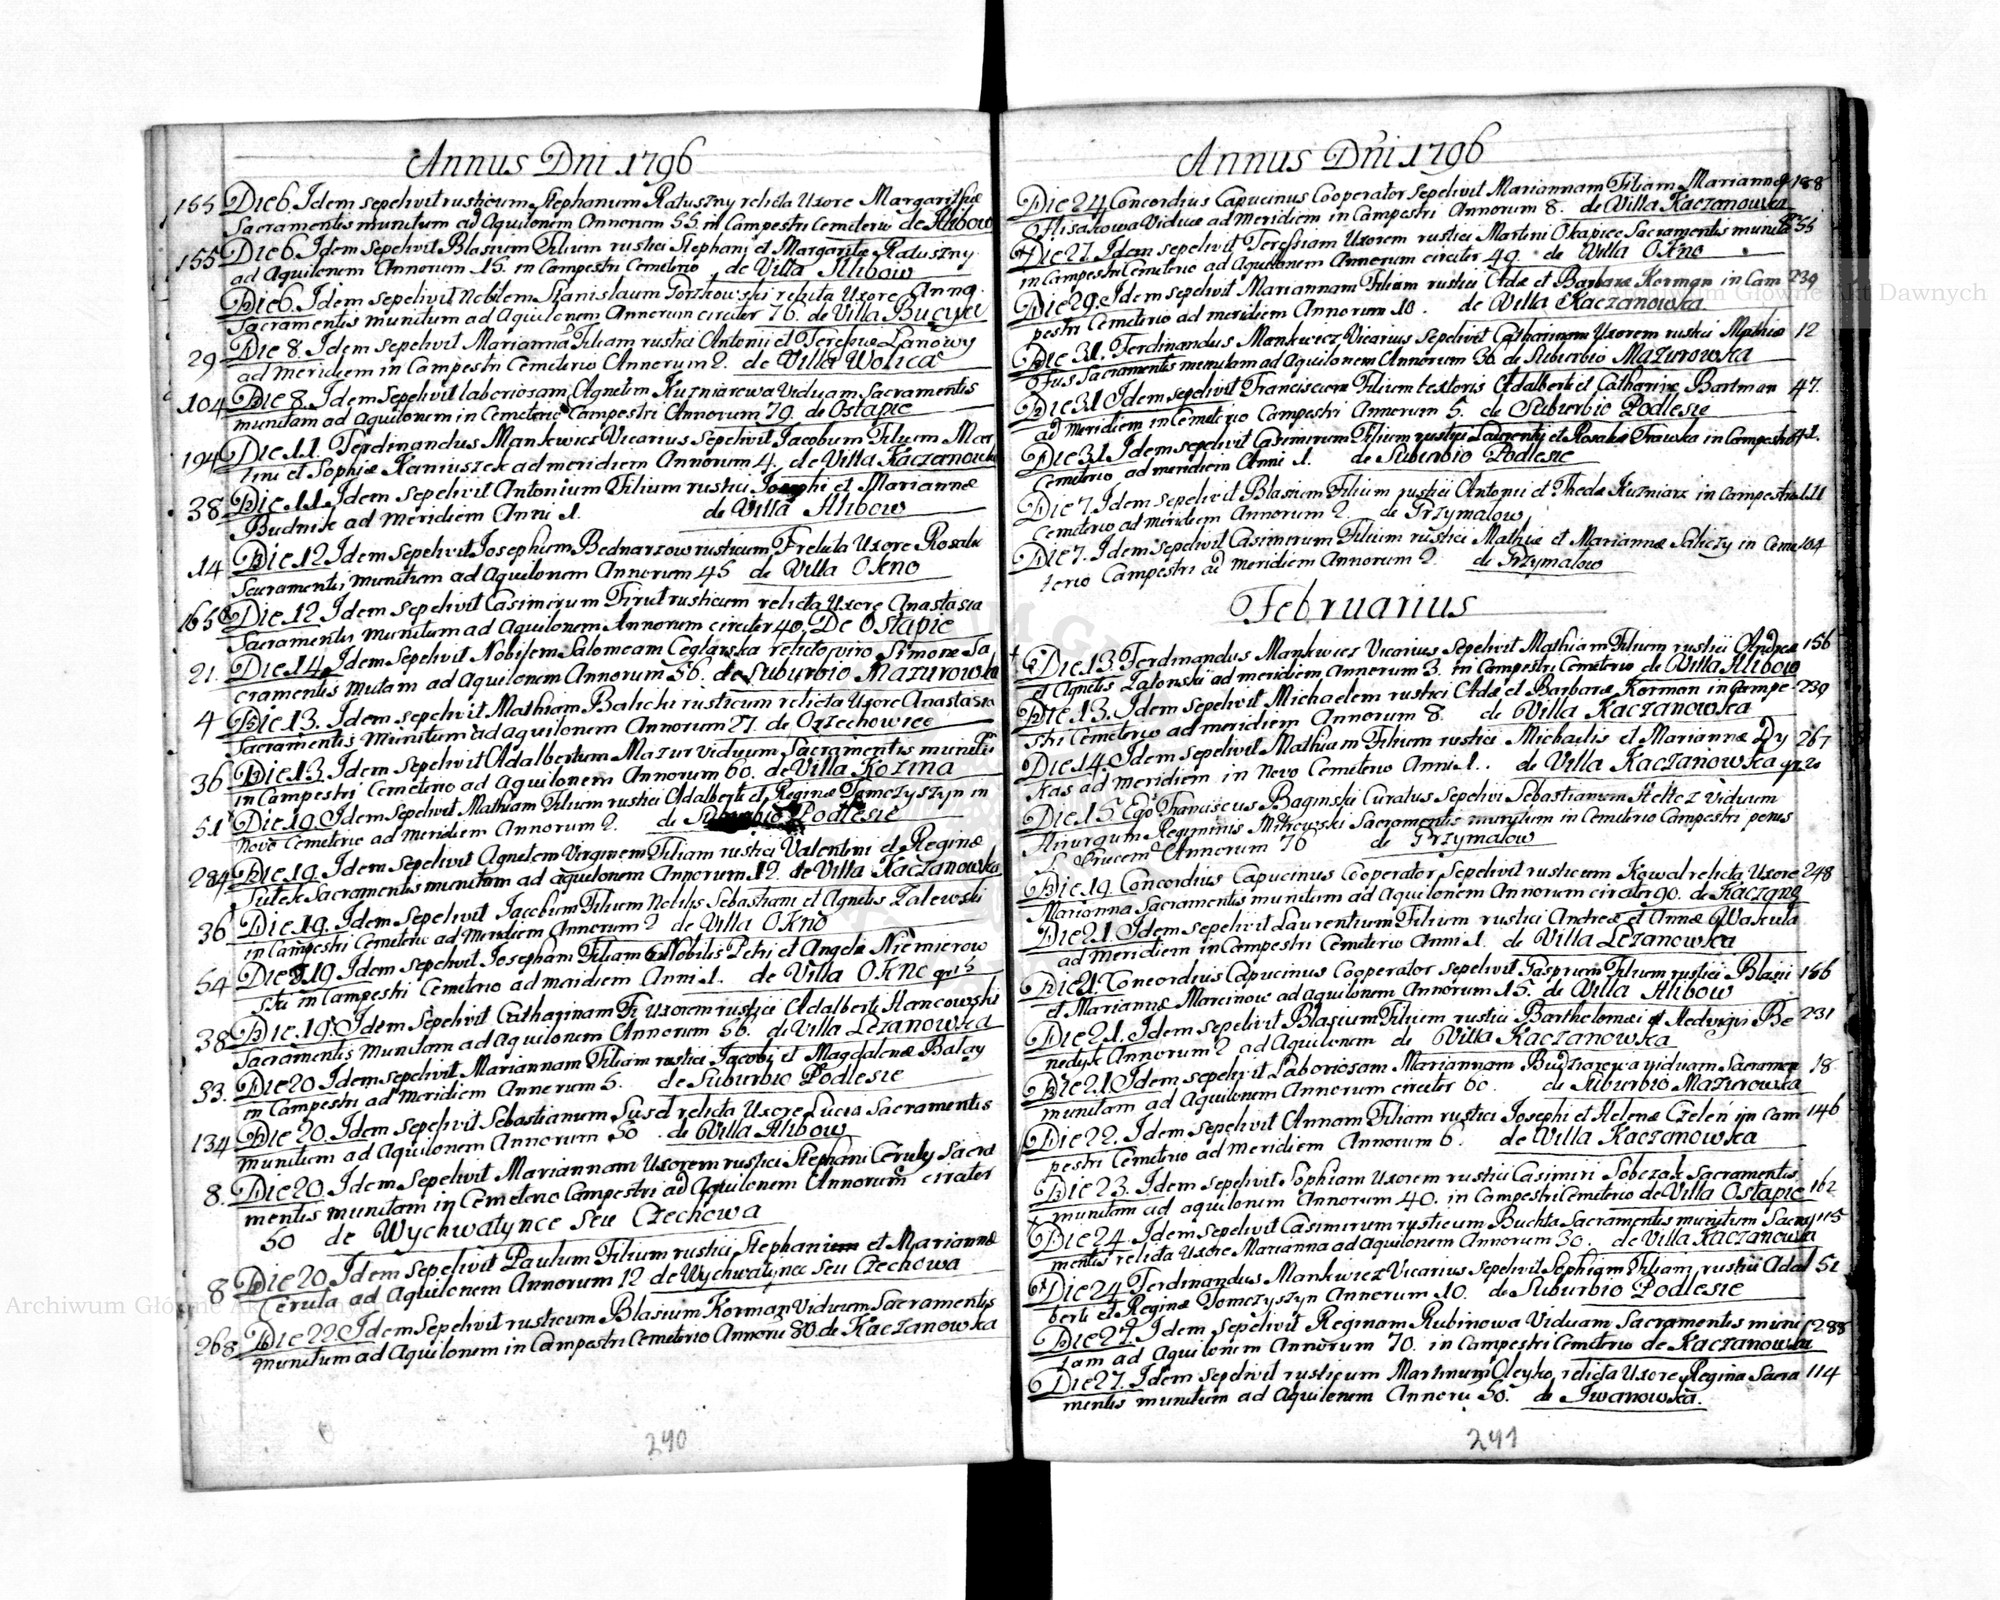 Annus Dni 1796
155 Die 6. Idem sepelivit rusticum Stephanum Ratuszny relicta Uxore Margaritha
Sacramentis munitum ad Aquilonem Annorum 55. in Campestri Cemeterio de Alibow
155 Die 6. Idem Sepelivit Blasium Filium rustici Stephani et Margaritæ Ratuszny
ad Aquilonem Annorum 15. in Campestri Cemeterio de Villa Alibow
Die 6. Idem sepelivit Nobilem Stanislaum Gorzkowski relicta Uxore Anna
Sacramentis munitum ad Aquilonem Annorum circiter 76. de Villa Bucyki
29 Die 8. Idem sepelivit Marianna Filiam rustici Antonii et Teressæ Lanowy
ad meridiem in Campestri Cemeterio Annorum 2. de Villa Wolica
104 Die 8. Idem Sepelivit laboriosam Agnetem Kuzniarewa Viduam Sacramentis
munitam ad Aquilonem in Cemeterio Campestri Annorum 70. de Ostapie
194 Die 11. Ferdinandus Mankwicz Vicarius Sepelivit Jacobum Filium Mar
tini et Sophiæ Kaniuszek ad meridiem Annorum 4. de Villa Kaczanowka
38 Die 11. Idem Sepelivit Antonium Filium rustici Josephi et Mariannæ
Budnik ad Meridiem Anni 1. de Villa Alibow
14 Die 12 Idem Sepelivit Josephum Bednarzow rusticum relicta Uxore Rosalia
Sacramentis munitum ad Aquilonem Annorum 45 de Villa Okno
165 Die 12 Idem Sepelivit Casimirum Firut rusticum relicta Uxore Anastasia
Sacramentis munitum ad Aquilonem Annorum circiter 40, De Ostapie
21. Die 14. Idem Sepelivit Nobilem Salomeam Ceglarska relicto viro Simone Sa
cramentis mutam ad Aquilonem Annorum 56. de Suburbio Mazurowka
4 Die 13. Idem sepelivit Mathiam Balicki rusticum relicta Uxore Anastasia
Sacramentis Munitum ad aquilonem Annorum 27. de Orzechowiec
36 Die 13. Idem sepelivit Adalbertum Mazur viduum Sacramentis munitum
in Campestri Cemeterio ad Aquilonem Annorum 60. de Villa Kozina
51 Die 19. Idem Sepelivit Mathiam Filium rustici Adalberti et Reginæ Tomczyszyn in
Novo Cemeterio ad Meridiem Annorum 2. de Suburbio Podlesie
284 Die 19. Idem Sepelivit Agnetem Virginem Filiam rustici Valentini et Reginæ
Sutek Sacramentis munitam ad aquilonem Annorum 12. de Villa Kaczanowka
36 Die 19. Idem Sepelivit Jacobum Filium Nobilis Sebastiani et Agnetis Zalewski
in Campestri Cemeterio ad Meridiem Annorum 2 de Villa Okno
54 Die 19 Idem Sepelivit Josepham Filiam Nobilis Petri et Angelæ Niemierow
ski in Campestri Cemeterio ad meridiem Anni 1. de Villa Okno
38 Die 19. Idem Sepelivit Catharinam Uxorem rustici Adalberti Hancowski
Sacramentis Munitam ad Aquilonem Annorum 56. de Villa Lezanowka
33. Die 20 Idem sepelivit Mariannam Filiam rustici Jacobi et Magdalenæ Balay
in Campestri ad Meridiem Annorum 5. de Suburbio Podlesie
134 Die 20. Idem Sepelivit Sebastianum Susel relicta Uxore Lucia Sacramentis
munitum ad Aquilonem Annorum 50. de Villa Alibow
8. Die 20. Idem Sepelivit Mariannam Uxorem rustici Stephani Ceruly Sacra
mentis munitam in Cemeterio Campestri ad Aquilonem Annorum circiter
50 de Wychwatynce seu Czechowa
8 Die 20 Idem Sepelivit Paulum Filium rustici Stephani et Mariannæ
Ceruta ad Aquilonem Annorum 12 de Wychwatynce seu Czechowa
268 Die 22 Idem Sepelivit rusticum Blasium Korman Viduum Sacramentis
munitum ad Aquilonem in Campestri Cemeterio Annoru 80. de Kaczanowka
240
Annus Dni 1796
Die 24 Concordius Capucinus Cooperator Sepelivit Mariannam Filiam Mariannæ 188
Flisakowa Viduæ ad Meridiem in Campestri Annorum 8. de Villa Kaczanowka
Die 27. Idem sepelivit Teressiam Uxorem rustici Martini Okapiec Sacramentis munita 55
in Campestri Cemeterio ad Aquilonem Annorum circiter 49. de Villa Okno
Die 29. Idem sepelivit Mariannam Filiam rustici Adæ et Barbaræ Korman in Cam 239
pestri Cemeterio ad meridiem Annorum 10. de Villa Kaczanowka
Die 31. Ferdinandus Mankwicz Vicarius Sepelivit Catharinam Uxorem rustici Mathiæ 12
Sacramentis munitam ad Aquilonem Annorum 36 de Suburbio Mazurowka
Die 31 Idem sepelivit Franciscum Filium textoris Adalberti et Catharinæ Bartman 47.
ad Meridiem in Cemeterio Campestri Annorum 5. de Suburbio Podlesie
Die 31 Idem sepelivit Casimirum Filium rustici Laurentij et Rosaliæ Trawka in Campestri 42.
Cemeterio ad meridiem Anni 1. de Suburbio Podlesie
Die 7. Idem sepelivit Blasium Filium rustici Antonii et Theclæ Kuzniarz in Campestri 111
Cemeterio ad Meridiem Annorum 2. de Grzymalow
Die 7. Idem sepelivit Casimirum Filium rustici Mathiæ et Mariannæ Saliczy in Ceme 104
terio Campestri ad Meridiem Annorum 2. de Grzymalow
Februarius
Die 13. Ferdinandus Mankwicz Vicarius Sepelivit Mathiam Filium rustici Andreæ 156
et Agnetis Jalonski ad meridiem Annorum 3. in Campestri Cemeterio de Villa Alibow
Die 13. Idem sepelivit Michaelem rustici Adæ et Barbaræ Korman in Campe 239
stri Cemeterio ad meridiem Annorum 8. de Villa Kaczanowka
Die 14 Idem sepelivit Mathiam Filium rustici Michaelis et Mariannæ Dy 267
kas ad meridiem in Novo Cemeterio Anni 1. de Villa Kaczanowka
Die 15 Ego Franciscus Baginski Curatus Sepelivi Sebastianum Heltez Viduum
Chirurgum Regiminis Mitrowski Sacramentis munitum in Cemeterio Campestri penes
S. Crucem Annorum 70 de Grzymalow
Die 19. Concordius Capucinus Cooperator Sepelivit rusticum Kowal relicta Uxore 248
Marianna Sacramentis munitum ad Aquilonem Annorum circiter 90. de Kaczano
Die 21. Idem Sepelivit Laurentium Filium rustici Andreæ et Annæ Waskula
ad Meridiem in Campestri Cemeterio Anni 1. de Villa Lezanowka
Die 21 Concordius Capucinus Cooperator sepelivit Gasprum Filium rustici Blasii 156
et Mariannæ Marcinow ad aquilonem Annorum 15. de Villa Alibow
Die 21. Idem sepelivit Blasium Filium rustici Bartholomæi et Hedvigis Be 231
nedyk Annorum 2 ad Aquilonem de Villa Kaczanowka
Die 21. Idem sepelivit Laboriosam Mariannam Budziarewa viduam Sacramen 18
munitam ad Aquilonem Annorum circiter 60. de Suburbio Mazurowka
Die 22. Idem sepelivit Annam Filiam rustici Josephi et Helenæ Czelen in Cam 146
pestri Cemeterio ad Meridiem Annorum 6. de Villa Kaczanowka
Die 23. Idem sepelivit Sophiam Uxorem rustici Casimiri Sobczak Sacramentis
munitam ad aquilonem Annorum 40. in Campestri Cemeterio de Villa Ostapie 162
Die 24. Idem Sepelivit Casimirum rusticum Buchta Sacramentis munitum Sacra 115
mentis relicta Uxore Marianna ad Aquilonem Annorum 30. de Villa Kaczanowka
Die 24 Ferdinandus Mankwicz Vicarius Sepelivit Sophiam Filiam rustici Adal 51
berti et Reginæ Tomczyszyn Annorum 10. de Suburbio Podlesie
Die 27. Idem Sepelivit Reginam Rubinowa Viduam Sacramentis muni 288
tam ad Aquilonem Annorum 70. in Campestri Cemeterio de Kaczanowka
Die 27. Idem sepelivit rusticum Martinum Oleyko, relicta Uxore Regina Sacra 114
mentis munitum ad Aquilonem Annoru 50. de Iwanowka.
241
Archiwum Główne Akt Dawnych
Archiwum Główne Akt Dawnych